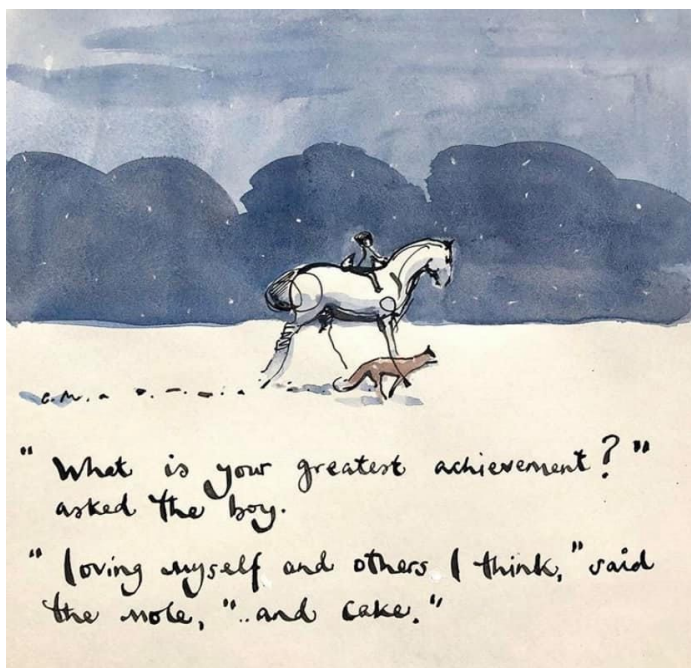 C.M.
"What is your greatest achievement?"
asked the boy.
"loving myself and others I think," said
the mole, "..and cake."